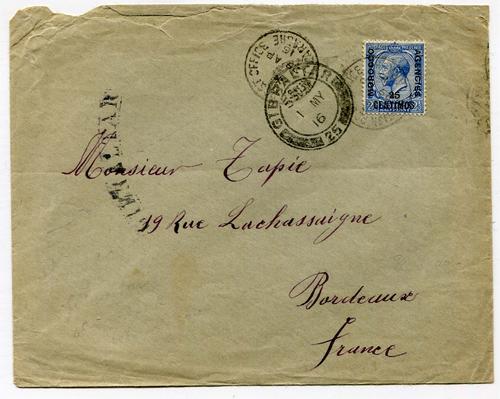 MOROCCO
AGENCIES
25
CENTIMOS
OFFICE
AP
GIBRALTAR
1 MY
16
25
Monsieur Tapie
19 Rue Lachassaigne
Bordeaux
France